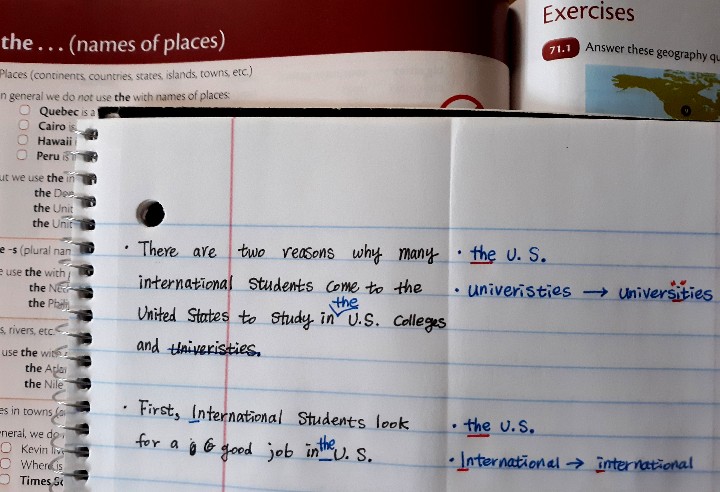 the . . . (names of places)
Places (continents, countries, states, islands, towns, etc.)
n general we do not use the with names of places:
Quebec is a
Cairo is
Hawaii
Peru is
ut we use the in
the
the
the
e -s (plural nan
e use the with
the
the
s, rivers, etc.
use the with
the
the Nile
es in towns
neral, we do
Kevin
Where is
Times
Exercises
71.1 Answer these geography qu
• There are two reasons why many
international students come to the
United States to study in the U.S. Colleges
and Univeristies.
• First, International Students look
for a G good job in the U.S.
• the U.S.
• univeristies → universities
• the U.S.
• International → international